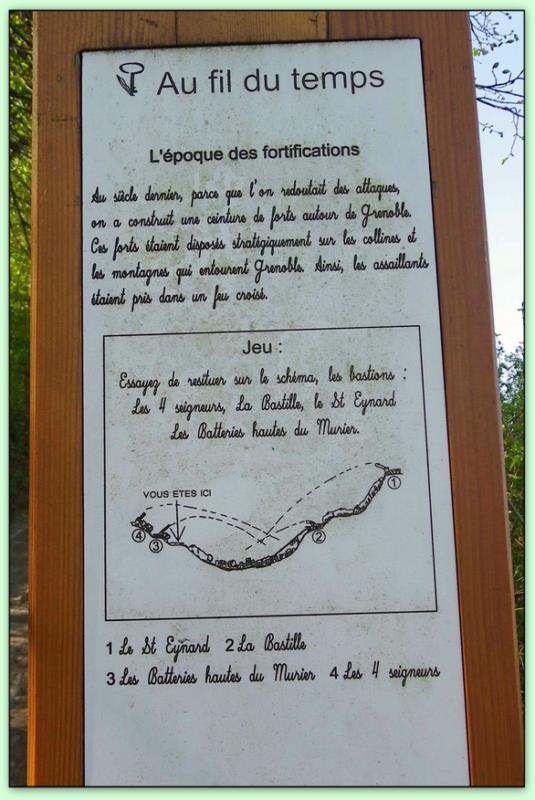 Au fil du temps
L'époque des fortifications
Au siècle dernier, parce que l'on redoutait des attaques,
on a construit une ceinture de forts autour de Grenoble.
Ces forts étaient disposés stratégiquement sur les collines et
les montagnes qui entourent Grenoble. Ainsi, les assaillants
étaient pris dans un feu croisé.
Jeu :
Essayez de resituer sur le schéma, les bastions :
Les 4 seigneurs, La Bastille, le St Eynard
Les Batteries hautes du Murier.
VOUS ETES ICI
1
2
3
4
1 Le St Eynard 2 La Bastille
3 Les Batteries hautes du Murier 4 Les 4 seigneurs